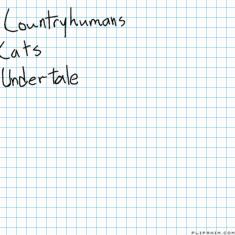 Countryhumans
Cats
Undertale
FLIPANIM.COM